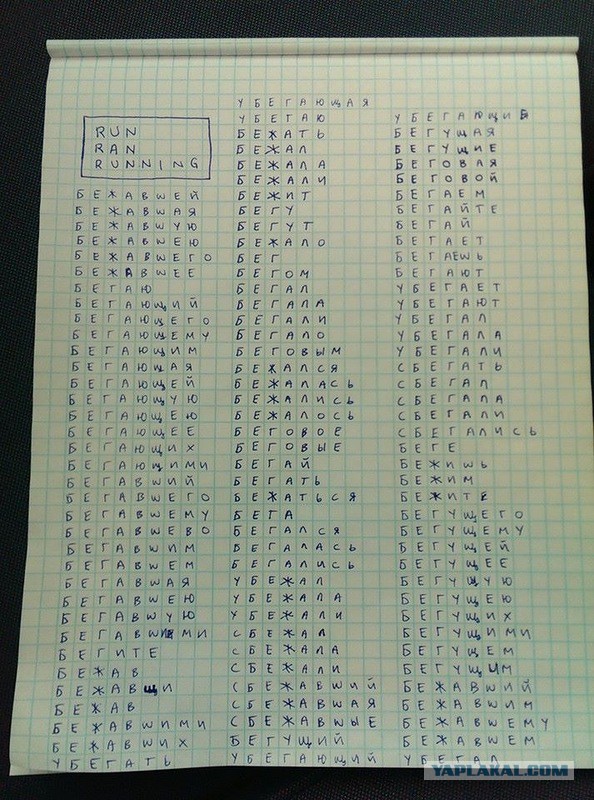 RUN
RAN
RUNNING
БЕЖАВШЕЙ
БЕЖАВШАЯ
БЕЖАВШУЮ
БЕЖАВШЕЮ
БЕЖАВШЕГО
БЕЖАВШЕЕ
БЕГАЮ
БЕГАЮЩИЙ
БЕГАЮЩЕГО
БЕГАЮЩЕМУ
БЕГАЮЩИМ
БЕГАЮЩАЯ
БЕГАЮЩЕЙ
БЕГАЮЩУЮ
БЕГАЮЩЕЮ
БЕГАЮЩЕЕ
БЕГАЮЩИХ
БЕГАЮЩИМИ
БЕГАВШИЙ
БЕГАВШЕГО
БЕГАВШЕМУ
БЕГАВШЕВО
БЕГАВШИМ
БЕГАВШЕМ
БЕГАВШАЯ
БЕГАВШЕЮ
БЕГАВШУЮ
БЕГАВШИМИ
БЕГИТЕ
БЕЖАВ
БЕЖАВЩИ
БЕЖАВ
БЕЖАВШИМИ
БЕЖАВШИХ
УБЕГАТЬ
УБЕГАЮЩАЯ
УБЕГАЮ
БЕЖАТЬ
БЕЖАЛ
БЕЖАЛА
БЕЖАЛИ
БЕЖИТ
БЕГУ
БЕГУТ
БЕЖАЛО
БЕГ
БЕГОМ
БЕГАЛ
БЕГАЛА
БЕГАЛИ
БЕГАЛО
БЕГОВЫМ
БЕЖАЛСЯ
БЕЖАЛАСЬ
БЕЖАЛИСЬ
БЕЖАЛОСЬ
БЕГОВОЕ
БЕГОВЫЕ
БЕГАЙ
БЕГАТЬ
БЕЖАТЬСЯ
БЕГА
БЕГАЛСЯ
БЕГАЛАСЬ
БЕГАЛИСЬ
УБЕЖАЛ
УБЕЖАЛА
УБЕЖАЛИ
СБЕЖАЛ
СБЕЖАЛА
СБЕЖАЛИ
СБЕЖАВШИЙ
СБЕЖАВШАЯ
СБЕЖАВШЫЕ
БЕГУЩИЙ
УБЕГАЮЩИЙ
УБЕГАЮЩИЕ
БЕГУЩАЯ
БЕГУЩИЕ
БЕГОВАЯ
БЕГОВОЙ
БЕГАЕМ
БЕГАЙТЕ
БЕГАЙ
БЕГАЕТ
БЕГАЕШЬ
БЕГАЮТ
УБЕГАЕТ
УБЕГАЮТ
УБЕГАЛ
УБЕГАЛА
УБЕГАЛИ
СБЕГАТЬ
СБЕГАЛ
СБЕГАЛА
СБЕГАЛИ
СБЕГАЛИСЬ
БЕГЕ
БЕЖИШЬ
БЕЖИМ
БЕЖИТЕ
БЕГУЩЕГО
БЕГУЩЕМУ
БЕГУЩЕЙ
БЕГУЩЕЕ
БЕГУЩУЮ
БЕГУЩЕЮ
БЕГУЩИХ
БЕГУЩИМИ
БЕГУЩЕМ
БЕГУЩИМ
БЕЖАВШИЙ
БЕЖАВШИМ
БЕЖАВШЕМУ
БЕЖАВШЕМ
УБЕГАЛ
YAPLAKAL.COM